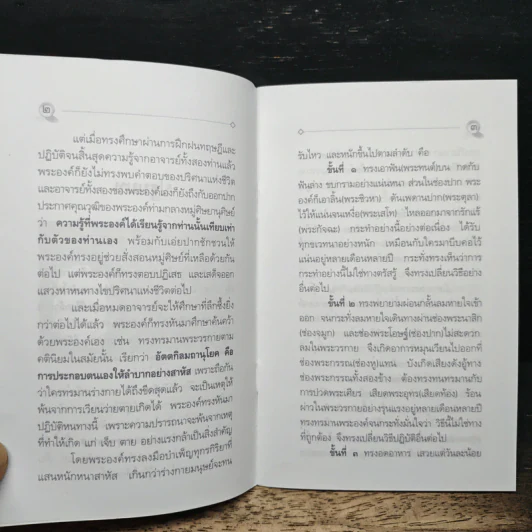 ๒
แต่เมื่อทรงศึกษาผ่านการฝึกฝนทฤษฎีและ
ปฏิบัติจนสิ้นสุดความรู้จากอาจารย์ทั้งสองท่านแล้ว
พระองค์ก็ยังไม่ทรงพบคำตอบของปริศนาแห่งชีวิต
และอาจารย์ทั้งสองของพระองค์เองก็ยังถึงกับออกปาก
ประกาศคุณวุฒิของพระองค์ท่ามกลางหมู่ศิษยานุศิษย์
ว่า ความรู้ที่พระองค์ได้เรียนรู้จากท่านนั้นเทียบเท่า
กับตัวของท่านเอง พร้อมกับเอ่ยปากชักชวนให้
พระองค์ทรงอยู่ช่วยสั่งสอนหมู่ศิษย์ที่เหลือด้วยกัน
ต่อไป แต่พระองค์ก็ทรงตอบปฏิเสธ และเสด็จออก
แสวงหาหนทางไขปริศนาแห่งชีวิตต่อไป
และเมื่อหมดอาจารย์จะให้ศึกษาที่ลึกซึ้งยิ่ง
กว่าต่อไปได้แล้ว พระองค์ก็ทรงหันมาศึกษาค้นคว้า
ด้วยพระองค์เอง เช่น ทรงทรมานพระวรกายตาม
คตินิยมในสมัยนั้น เรียกว่า อัตตกิลมถานุโยค คือ
การประกอบตนเองให้ลำบากอย่างสาหัส เพราะถือกัน
ว่าใครทรมานร่างกายได้ถึงขีดสุดแล้ว จะเป็นเหตุให้
พ้นจากการเวียนว่ายตายเกิดได้ พระองค์ทรงหันมา
ปฏิบัติหนทางนี้ เพราะความปรารถนาจะพ้นจากเหตุ
ที่ทำให้เกิด แก่ เจ็บ ตาย อย่างแรงกล้าเป็นสิ่งสำคัญ
โดยพระองค์ทรงลงมือบำเพ็ญทุกรกิริยาที่
แสนหนักหนาสาหัส เกินกว่าร่างกายมนุษย์จะทน
๓
รับไหว และหนักขึ้นไปตามลำดับ คือ
ขั้นที่ ๑ ทรงเอาฟัน(พระทนต์)บน กดกับ
ฟันล่าง ขบกรามอย่างแน่นหนา ส่วนในช่องปาก พระ
องค์ก็เอาลิ้น(พระชิวหา) ดันเพดานปาก(พระตาลุ)
ไว้ให้แน่นจนเหงื่อ(พระเสโท) ไหลออกมาจากรักแร้
(พระกัจฉะ) กระทำอย่างนี้อย่างต่อเนื่อง ได้รับ
ทุกขเวทนาอย่างหนัก เหมือนกับใครมาบีบคอไว้
แน่นอยู่หลายเดือนหลายปี กระทั่งทรงเห็นว่าการ
กระทำอย่างนี้ไม่ใช่ทางตรัสรู้ จึงทรงเปลี่ยนวิธีอย่าง
อื่นต่อไป
ขั้นที่ ๒ ทรงพยายามผ่อนกลั้นลมหายใจเข้า
ออก จนกระทั่งลมหายใจเดินทางผ่านช่องพระนาสิก
(ช่องจมูก) และช่องพระโอษฐ์(ช่องปาก)ไม่สะดวก
ลมในพระวรกาย จึงเกิดอาการหมุนเวียนไปออกที่
ช่องพระกรรณ(ช่องหู)แทน บังเกิดเสียงดังอู้ทาง
ช่องพระกรรณทั้งสองข้าง ต้องทรงทนทรมานกับ
การปวดพระเศียร เสียดพระอุทร(เสียดท้อง) ร้อน
ผ่าวในพระวรกายอย่างรุนแรงอยู่หลายเดือนหลายปี
ทรงทรมานพระองค์จนกระทั่งมั่นใจว่า วิธีนี้ไม่ใช่ทาง
ที่ถูกต้อง จึงทรงเปลี่ยนวิธีปฏิบัติอื่นต่อไป
ขั้นที่ ๓ ทรงอดอาหาร เสวยแต่วันละน้อย